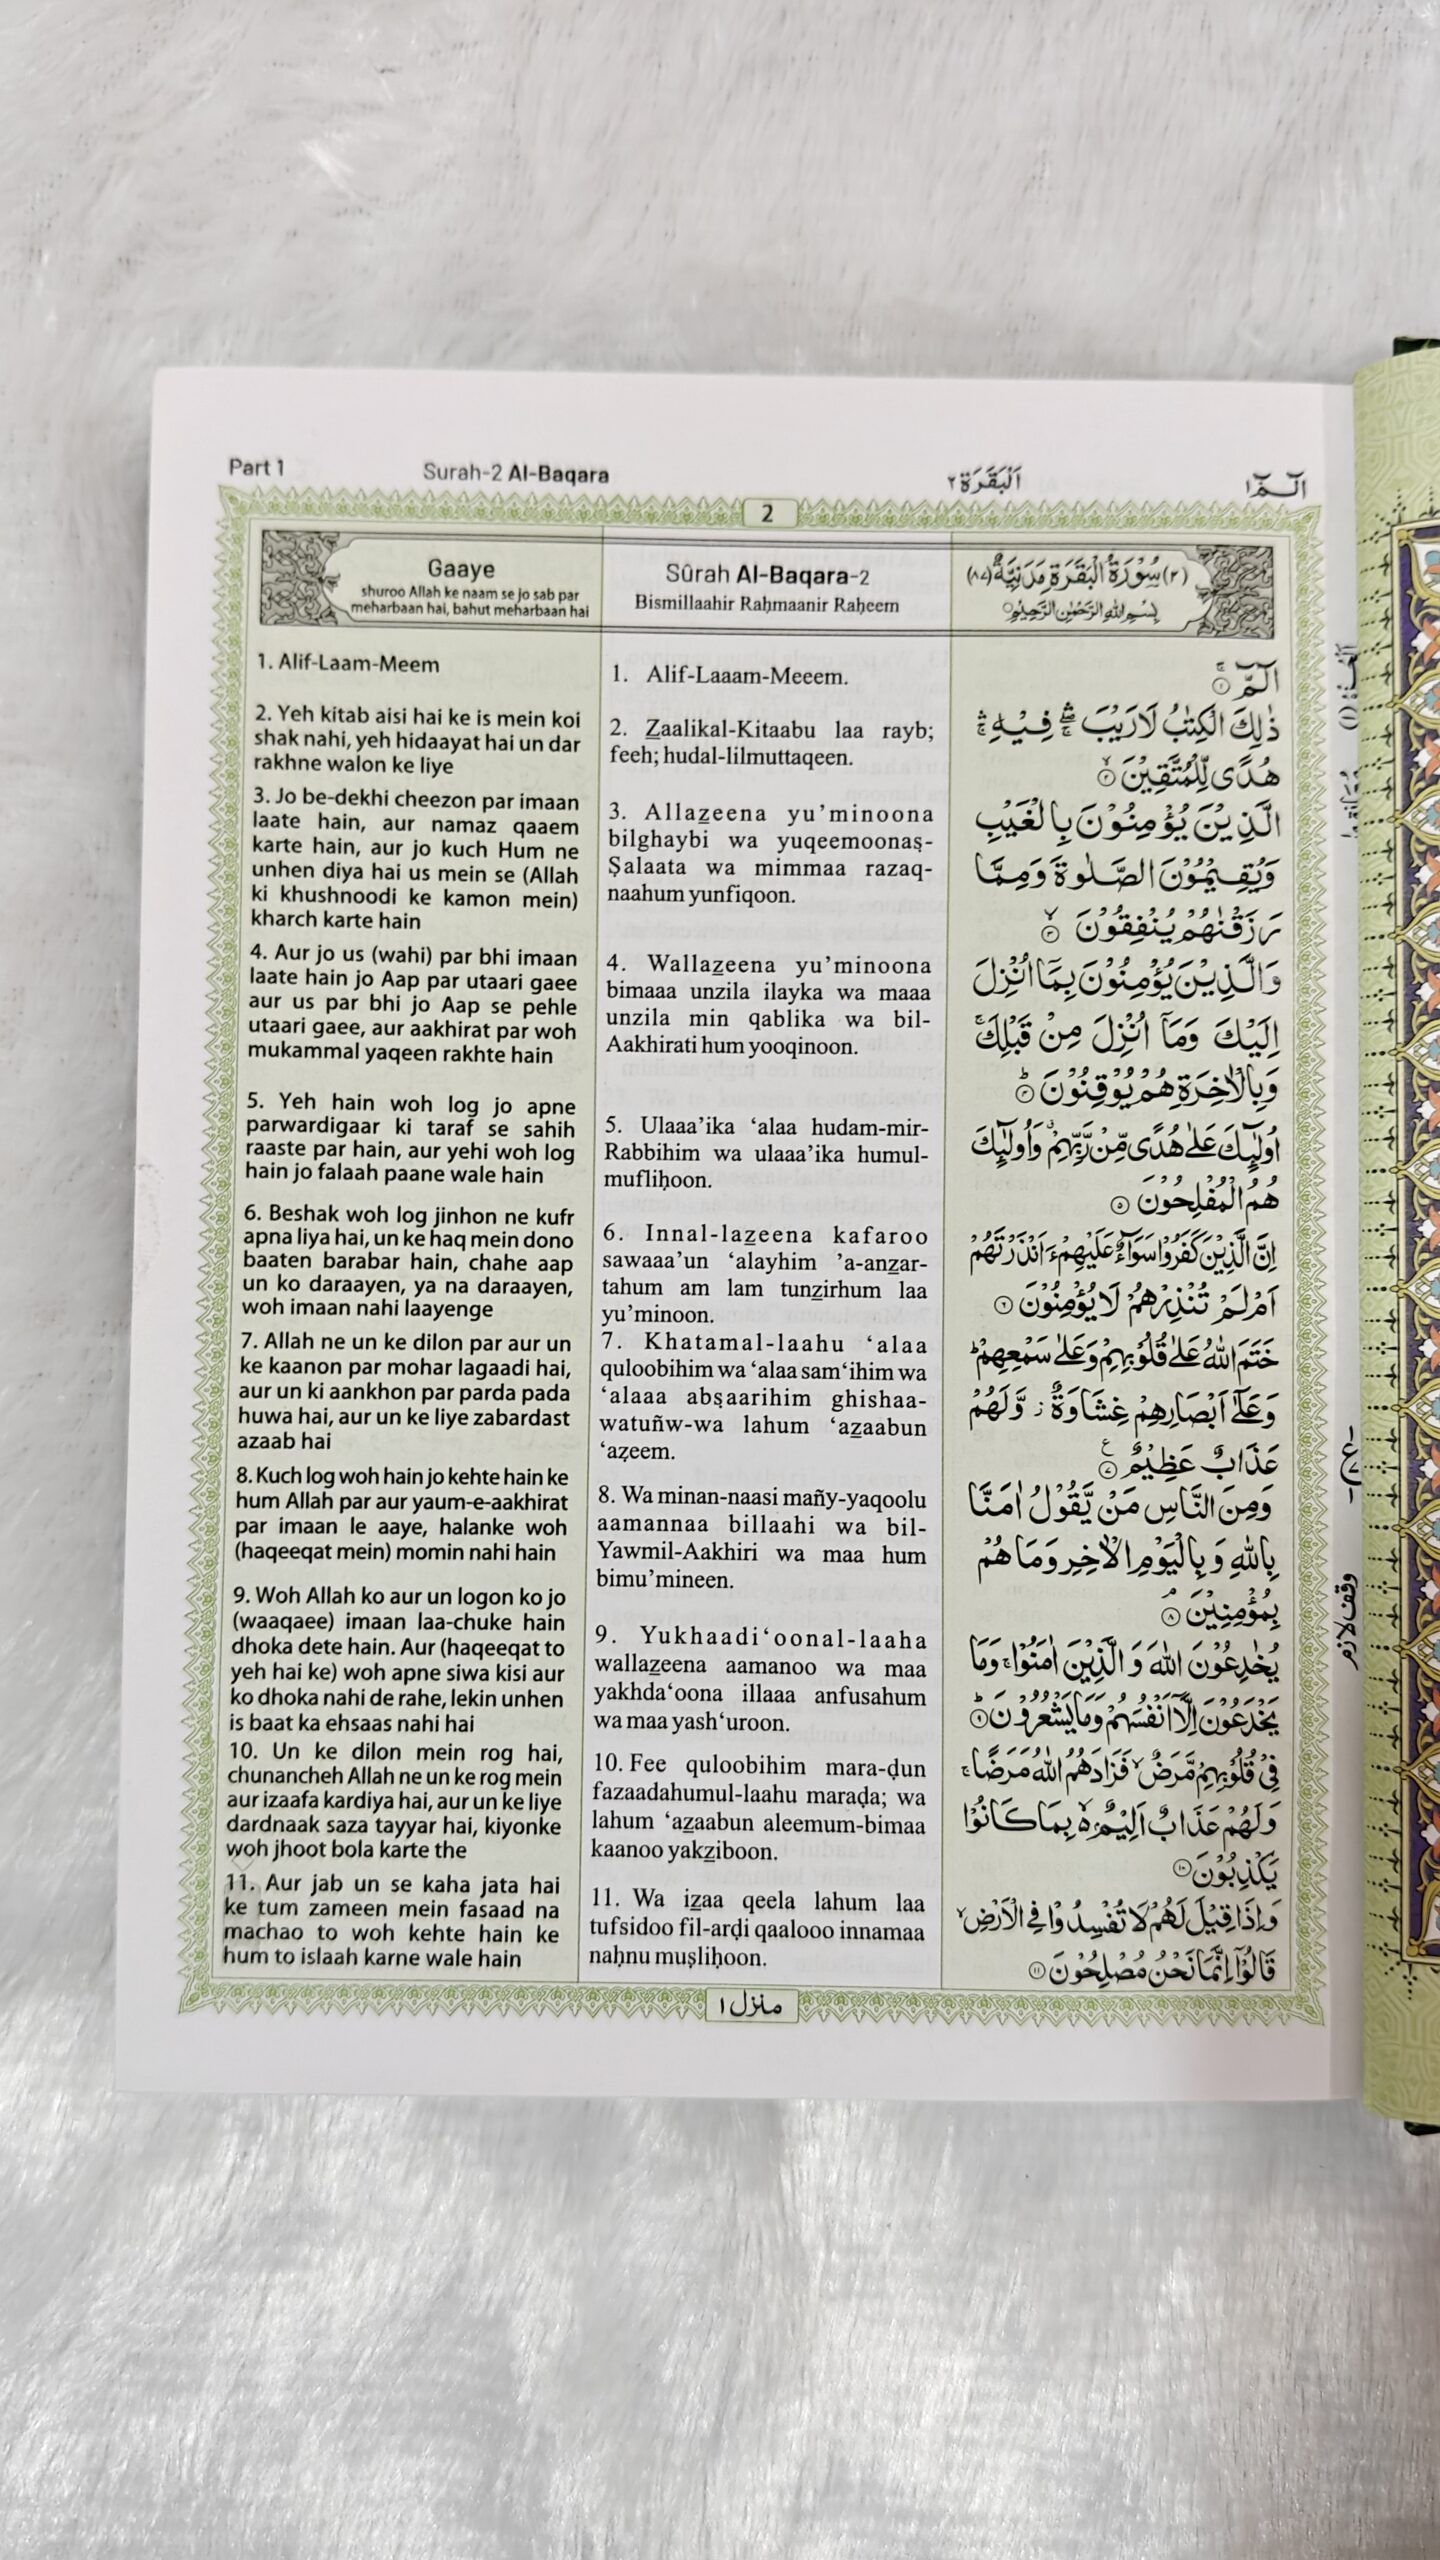 Part 1
Surah-2 Al-Baqara
اَلْبَقَرَة ٢
الٓـمّٓ ١
2
Gaaye
shuroo Allah ke naam se jo sab par
meharbaan hai, bahut meharbaan hai
1. Alif-Laam-Meem
2. Yeh kitab aisi hai ke is mein koi
shak nahi, yeh hidaayat hai un dar
rakhne walon ke liye
3. Jo be-dekhi cheezon par imaan
laate hain, aur namaz qaaem
karte hain, aur jo kuch Hum ne
unhen diya hai us mein se (Allah
ki khushnoodi ke kamon mein)
kharch karte hain
4. Aur jo us (wahi) par bhi imaan
laate hain jo Aap par utaari gaee
aur us par bhi jo Aap se pehle
utaari gaee, aur aakhirat par woh
mukammal yaqeen rakhte hain
5. Yeh hain woh log jo apne
parwardigaar ki taraf se sahih
raaste par hain, aur yehi woh log
hain jo falaah paane wale hain
6. Beshak woh log jinhon ne kufr
apna liya hai, un ke haq mein dono
baaten barabar hain, chahe aap
un ko daraayen, ya na daraayen,
woh imaan nahi laayenge
7. Allah ne un ke dilon par aur un
ke kaanon par mohar lagaadi hai,
aur un ki aankhon par parda pada
huwa hai, aur un ke liye zabardast
azaab hai
8. Kuch log woh hain jo kehte hain ke
hum Allah par aur yaum-e-aakhirat
par imaan le aaye, halanke woh
(haqeeqat mein) momin nahi hain
9. Woh Allah ko aur un logon ko jo
(waaqaee) imaan laa-chuke hain
dhoka dete hain. Aur (haqeeqat to
yeh hai ke) woh apne siwa kisi aur
ko dhoka nahi de rahe, lekin unhen
is baat ka ehsaas nahi hai
10. Un ke dilon mein rog hai,
chunancheh Allah ne un ke rog mein
aur izaafa kardiya hai, aur un ke liye
dardnaak saza tayyar hai, kiyonke
woh jhoot bola karte the
11. Aur jab un se kaha jata hai
ke tum zameen mein fasaad na
machao to woh kehte hain ke
hum to islaah karne wale hain
Sûrah Al-Baqara-2
Bismillaahir Raḥmaanir Raḥeem
1. Alif-Laaam-Meeem.
2. Z̲aalikal-Kitaabu laa rayb;
feeh; hudal-lilmuttaqeen.
3. Allaz̲eena yu’minoona
bilghaybi wa yuqeemoonaṣ-
Ṣalaata wa mimmaa razaq-
naahum yunfiqoon.
4. Wallaz̲eena yu’minoona
bimaaa unzila ilayka wa maaa
unzila min qablika wa bil-
Aakhirati hum yooqinoon.
5. Ulaaa’ika ‘alaa hudam-mir-
Rabbihim wa ulaaa’ika humul-
mufliḥoon.
6. Innal-laz̲eena kafaroo
sawaaa’un ‘alayhim ’a-anz̲ar-
tahum am lam tunz̲irhum laa
yu’minoon.
7. Khatamal-laahu ‘alaa
quloobihim wa ‘alaa sam‘ihim wa
‘alaaa abṣaarihim ghishaa-
watuñw-wa lahum ‘az̲aabun
‘aẓeem.
8. Wa minan-naasi mañy-yaqoolu
aamannaa billaahi wa bil-
Yawmil-Aakhiri wa maa hum
bimu’mineen.
9. Yukhaadi‘oonal-laaha
wallaz̲eena aamanoo wa maa
yakhda‘oona illaaa anfusahum
wa maa yash‘uroon.
10. Fee quloobihim mara-ḍun
fazaadahumul-laahu maraḍa; wa
lahum ‘az̲aabun aleemum-bimaa
kaanoo yakz̲iboon.
11. Wa iz̲aa qeela lahum laa
tufsidoo fil-arḍi qaalooo innamaa
naḥnu muṣliḥoon.
(٢) سُوْرَةُ الْبَقَرَةِ مَدَنِيَّةٌ (٨٧)
بِسْمِ اللّٰهِ الرَّحْمٰنِ الرَّحِيْمِ
الٓمّٓ ۚ ۝١
ذٰلِكَ الْكِتٰبُ لَا رَيْبَ ۛۖ فِيْهِ ۛۚ
هُدًى لِّلْمُتَّقِيْنَ ۙ ۝٢
الَّذِيْنَ يُؤْمِنُوْنَ بِالْغَيْبِ
وَيُقِيْمُوْنَ الصَّلٰوةَ وَمِمَّا
رَزَقْنٰهُمْ يُنْفِقُوْنَ ۙ ۝٣
وَالَّذِيْنَ يُؤْمِنُوْنَ بِمَآ اُنْزِلَ
اِلَيْكَ وَمَآ اُنْزِلَ مِنْ قَبْلِكَ ۚ
وَبِالْاٰخِرَةِ هُمْ يُوْقِنُوْنَ ؕ ۝٤
اُولٰٓئِكَ عَلٰى هُدًى مِّنْ رَّبِّهِمْ ۗ وَاُولٰٓئِكَ
هُمُ الْمُفْلِحُوْنَ ۝٥
اِنَّ الَّذِيْنَ كَفَرُوْا سَوَآءٌ عَلَيْهِمْ ءَاَنْذَرْتَهُمْ
اَمْ لَمْ تُنْذِرْهُمْ لَا يُؤْمِنُوْنَ ۝٦
خَتَمَ اللّٰهُ عَلٰى قُلُوْبِهِمْ وَعَلٰى سَمْعِهِمْ ؕ
وَعَلٰٓى اَبْصَارِهِمْ غِشَاوَةٌ ز وَّلَهُمْ
عَذَابٌ عَظِيْمٌ ۝٧ ع
وَمِنَ النَّاسِ مَنْ يَّقُوْلُ اٰمَنَّا
بِاللّٰهِ وَبِالْيَوْمِ الْاٰخِرِ وَمَا هُمْ
بِمُؤْمِنِيْنَ ۘ ۝٨
يُخٰدِعُوْنَ اللّٰهَ وَالَّذِيْنَ اٰمَنُوْا ۚ وَمَا
يَخْدَعُوْنَ اِلَّاۤ اَنْفُسَهُمْ وَمَا يَشْعُرُوْنَ ؕ ۝٩
فِيْ قُلُوْبِهِمْ مَّرَضٌ ۙ فَزَادَهُمُ اللّٰهُ مَرَضًا ۚ
وَلَهُمْ عَذَابٌ اَلِيْمٌ ۙ۬ بِمَا كَانُوْا
يَكْذِبُوْنَ ۝١٠
وَاِذَا قِيْلَ لَهُمْ لَا تُفْسِدُوْا فِي الْاَرْضِ ۙ
قَالُوْۤا اِنَّمَا نَحْنُ مُصْلِحُوْنَ ۝١١
وقف لازم
منزل ١